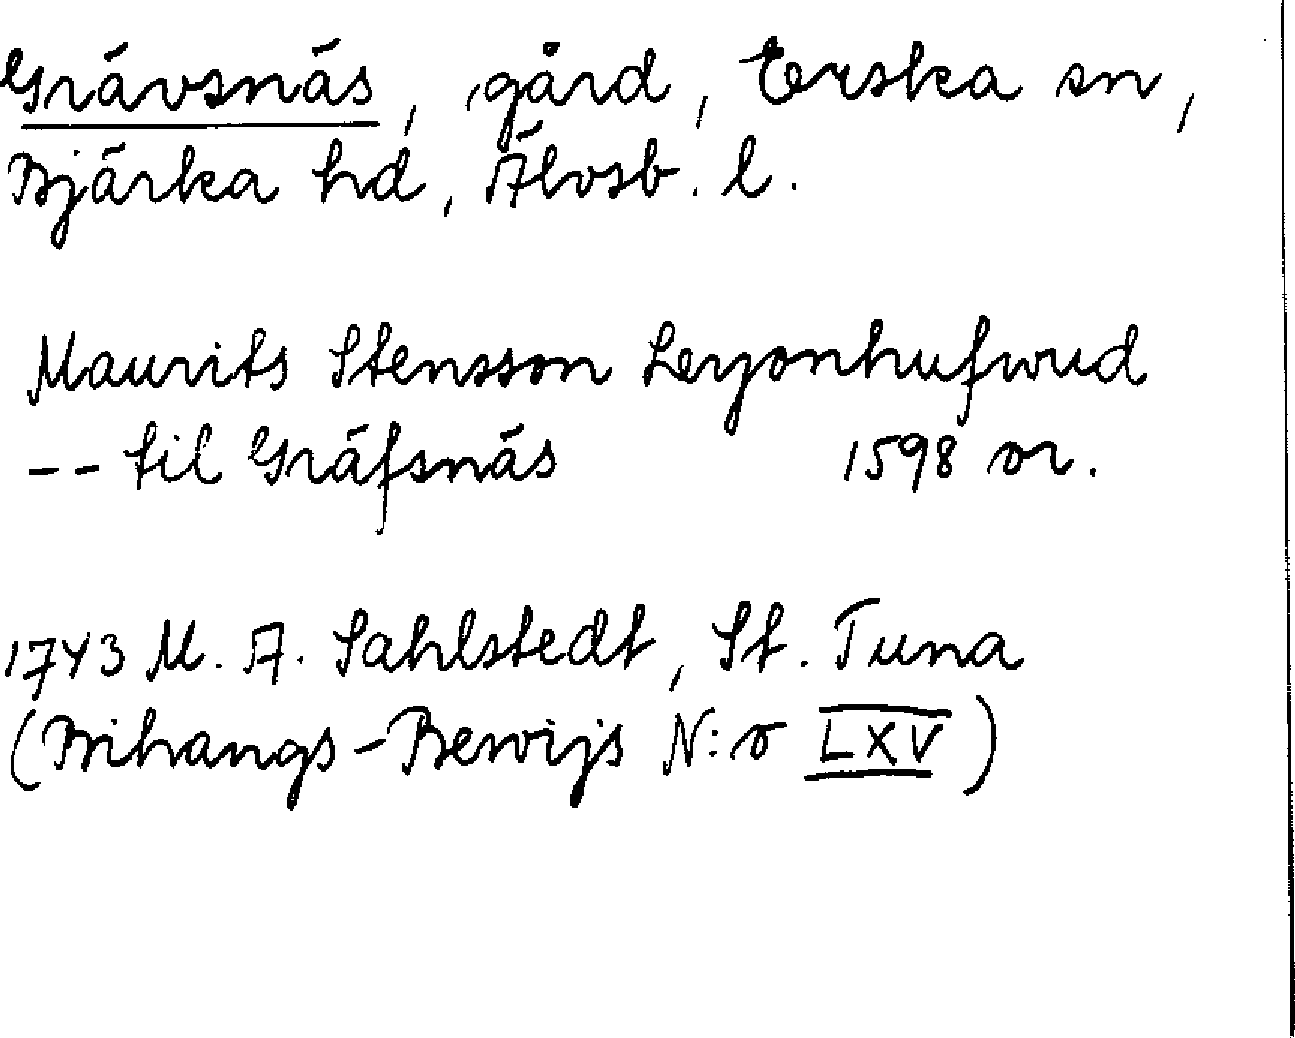 Grävsnäs, gård, Erska sn,
Bjärka hd, Älvsb. l.
Maurits Stensson Leyonhufwud
-- til Gräfsnäs 1598 or.
1743 M. A. Sahlstedt, St. Tuna
(Bihangs-Bewijs N:o LXV)